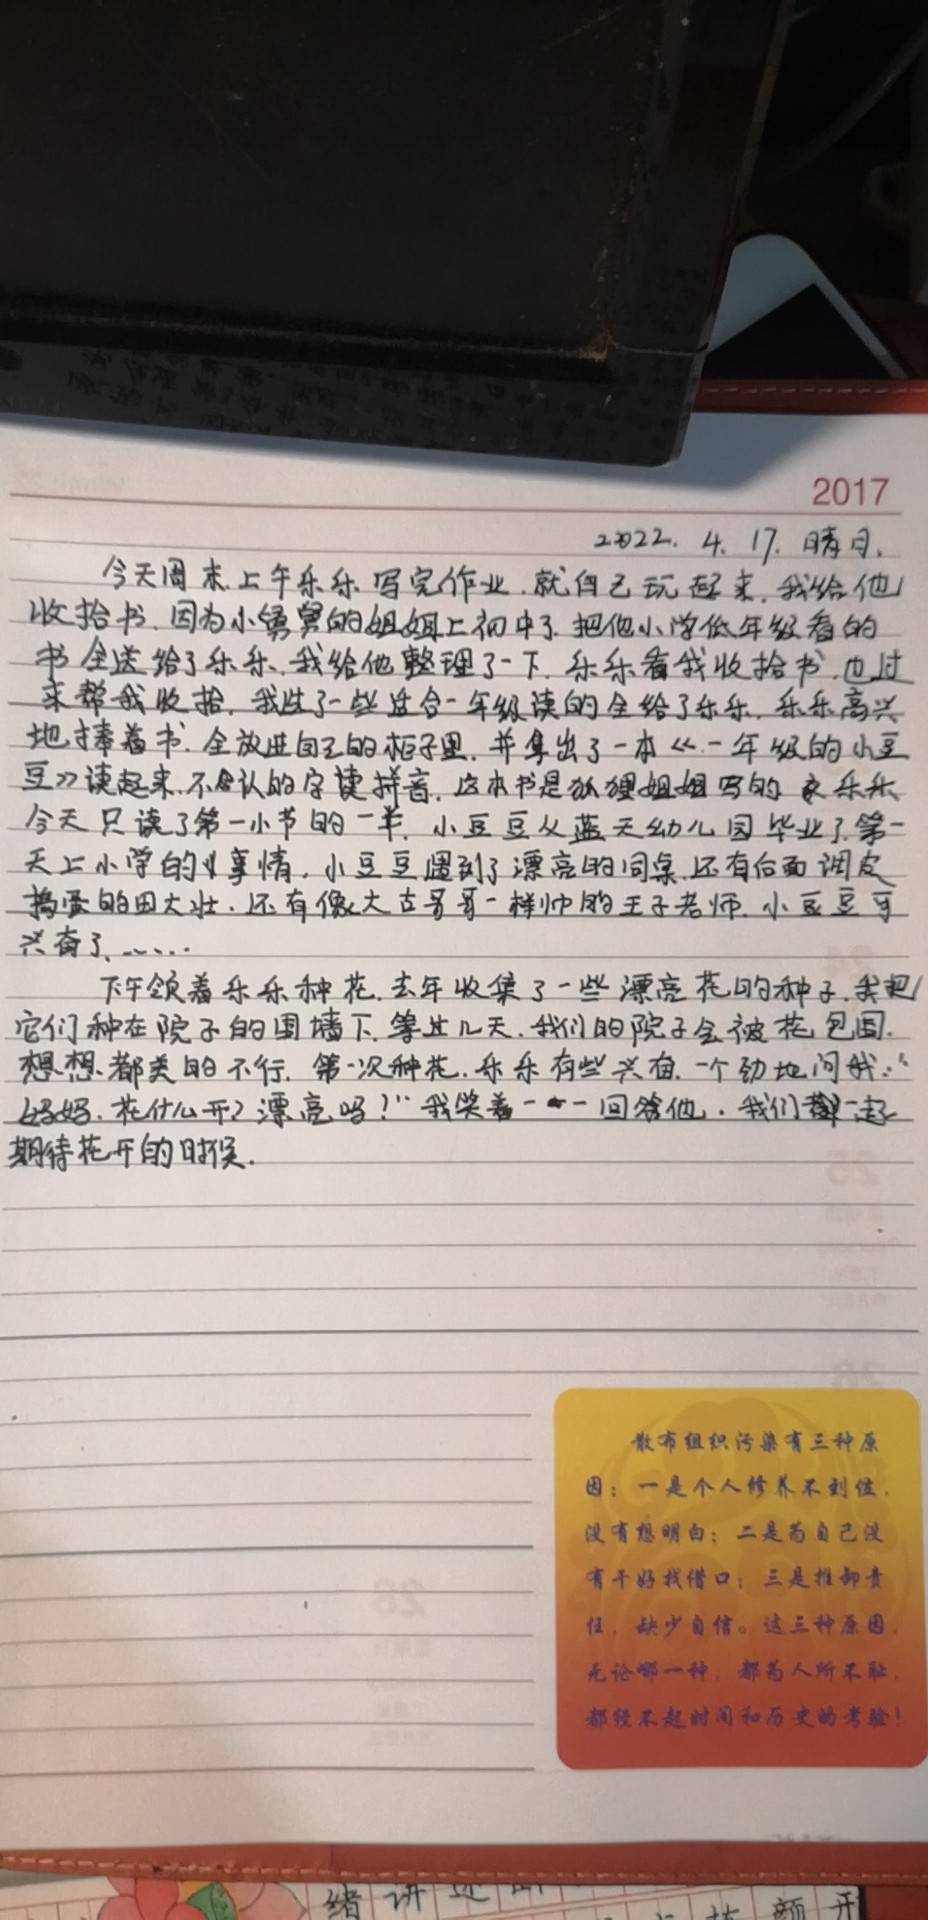 2017
2022. 4. 17. 晴日.
今天周末.上午乐乐写完作业.就自己玩起来.我给他
收拾书.因为小舅舅的姐姐上初中了.把他小学低年级看的
书全送给了乐乐.我给他整理了一下.乐乐看我收拾书.也过
来帮我收拾.我选了一些适合一年级读的全给了乐乐.乐乐高兴
地捧着书.全放进自己的柜子里.并拿出了一本《一年级的小豆
豆》读起来.不会认的字读拼音.这本书是狐狸姐姐写的 乐乐
今天只读了第一小节的一半.小豆豆从蓝天幼儿园毕业了.第一
天上小学的事情.小豆豆遇到了漂亮的同桌.还有后面调皮
捣蛋的田大壮.还有像大古哥哥一样帅的王子老师.小豆豆可
兴奋了.……
下午领着乐乐种花.去年收集了一些漂亮花的种子.我把
它们种在院子的围墙下.等过几天.我们的院子会被花包围.
想想都美的不行.第一次种花.乐乐有些兴奋.一个劲地问我:“
妈妈.花什么开?漂亮吗!”我笑着一一回答他.我们一起
期待花开的时候.
散布组织污染有三种原
因：一是个人修养不到位，
没有想明白；二是为自己没
有干好找借口；三是推卸责
任，缺少自信。这三种原因，
无论哪一种，都为人所不耻，
都经不起时间和历史的考验！
绪讲述
颜开